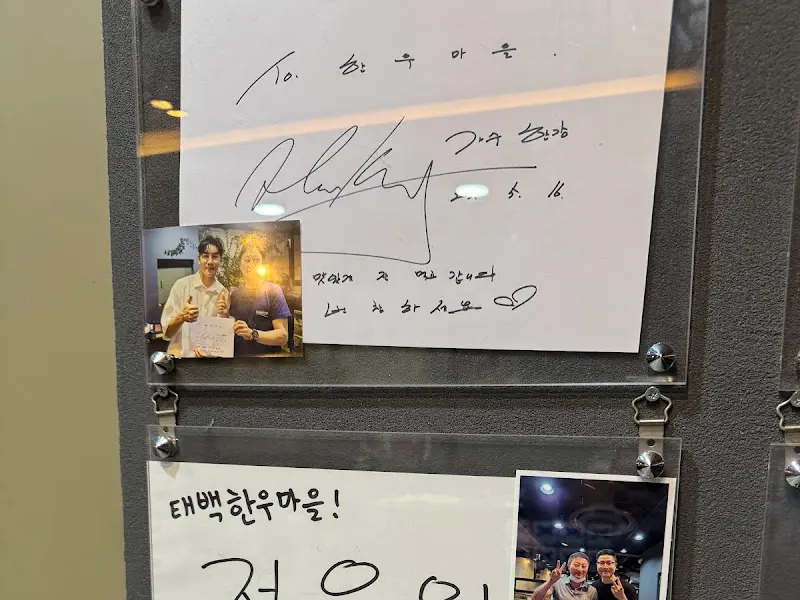 To. 한우마을.
가수 한강
5. 16.
맛있게 잘 먹고 갑니다
번창하세요♡
태백한우마을!